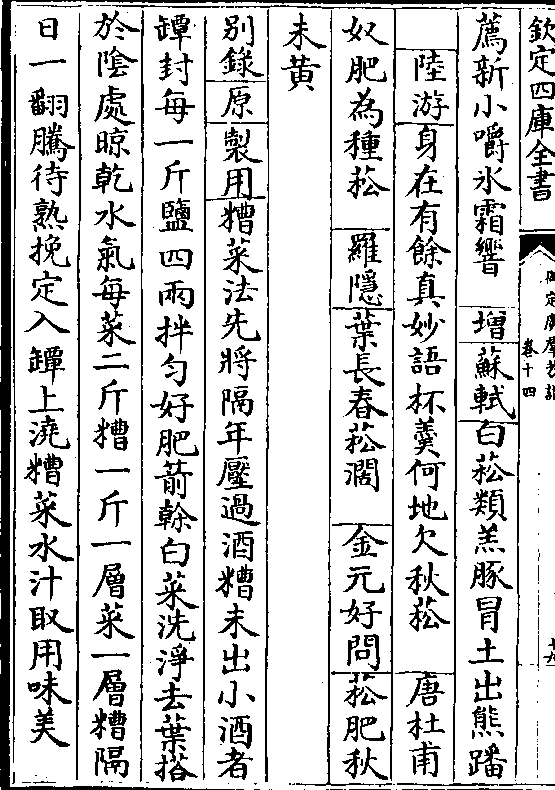 欽定四庫全書
御定廣羣芳譜
卷十四
薦新小嚼冰霜響　增蘇軾白菘類羔豚冒土出熊蹯
陸游身在有餘真妙語杯羹何地欠秋菘　唐杜甫
奴肥為種菘　羅隱葉長春菘濶　金元好問菘肥秋
未黄
別錄原製用糟菜法先將隔年壓過酒糟未出小酒者
罈封每一斤鹽四兩拌勻好肥箭幹白菜洗淨去葉搭
於陰處晾乾水氣每菜二斤糟一斤一層菜一層糟隔
日一翻騰待熟挽定入罈上澆糟菜水汁取用味美